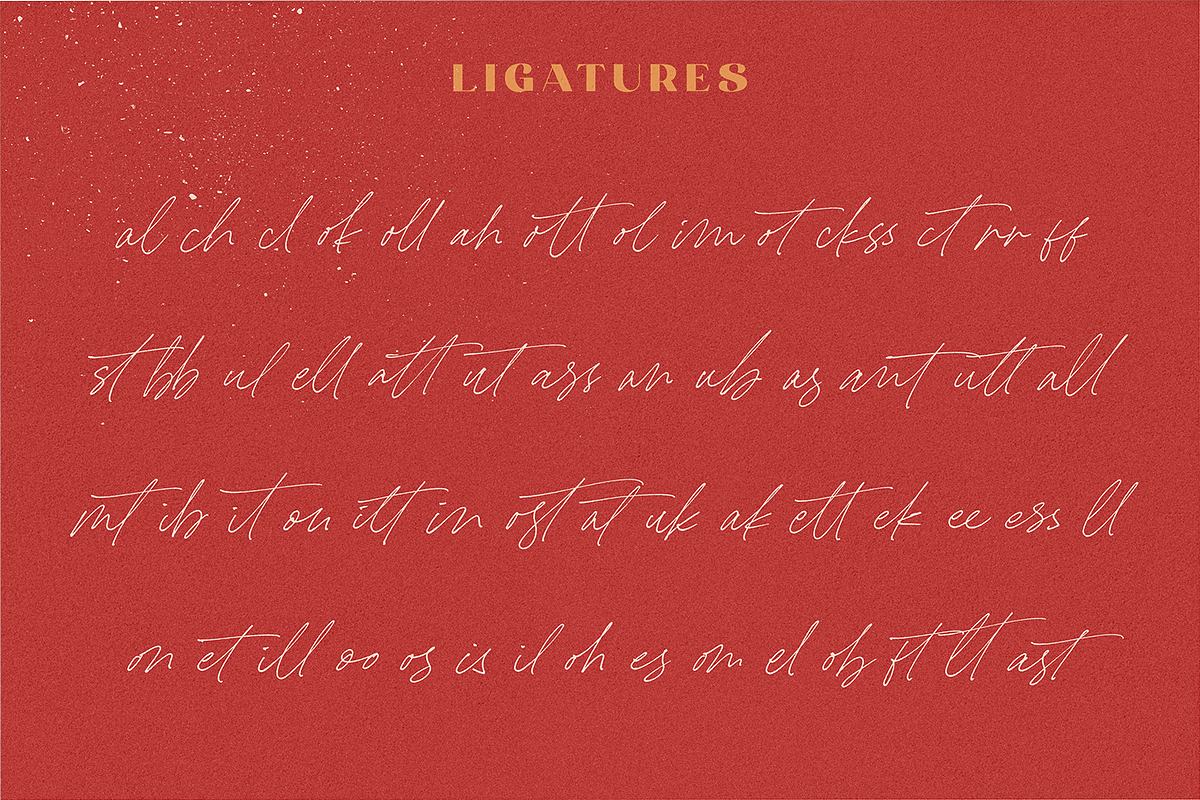 LIGATURES
al ch cl ok oll ah ott ol im ot ck ss ct rr ff
st bb ul ell att ut ass an ub as ant utt all
mt ib it ou itt in ost at uk ak ett ek ee ess ll
on et ill oo os is il oh es om el ob ft tt ast